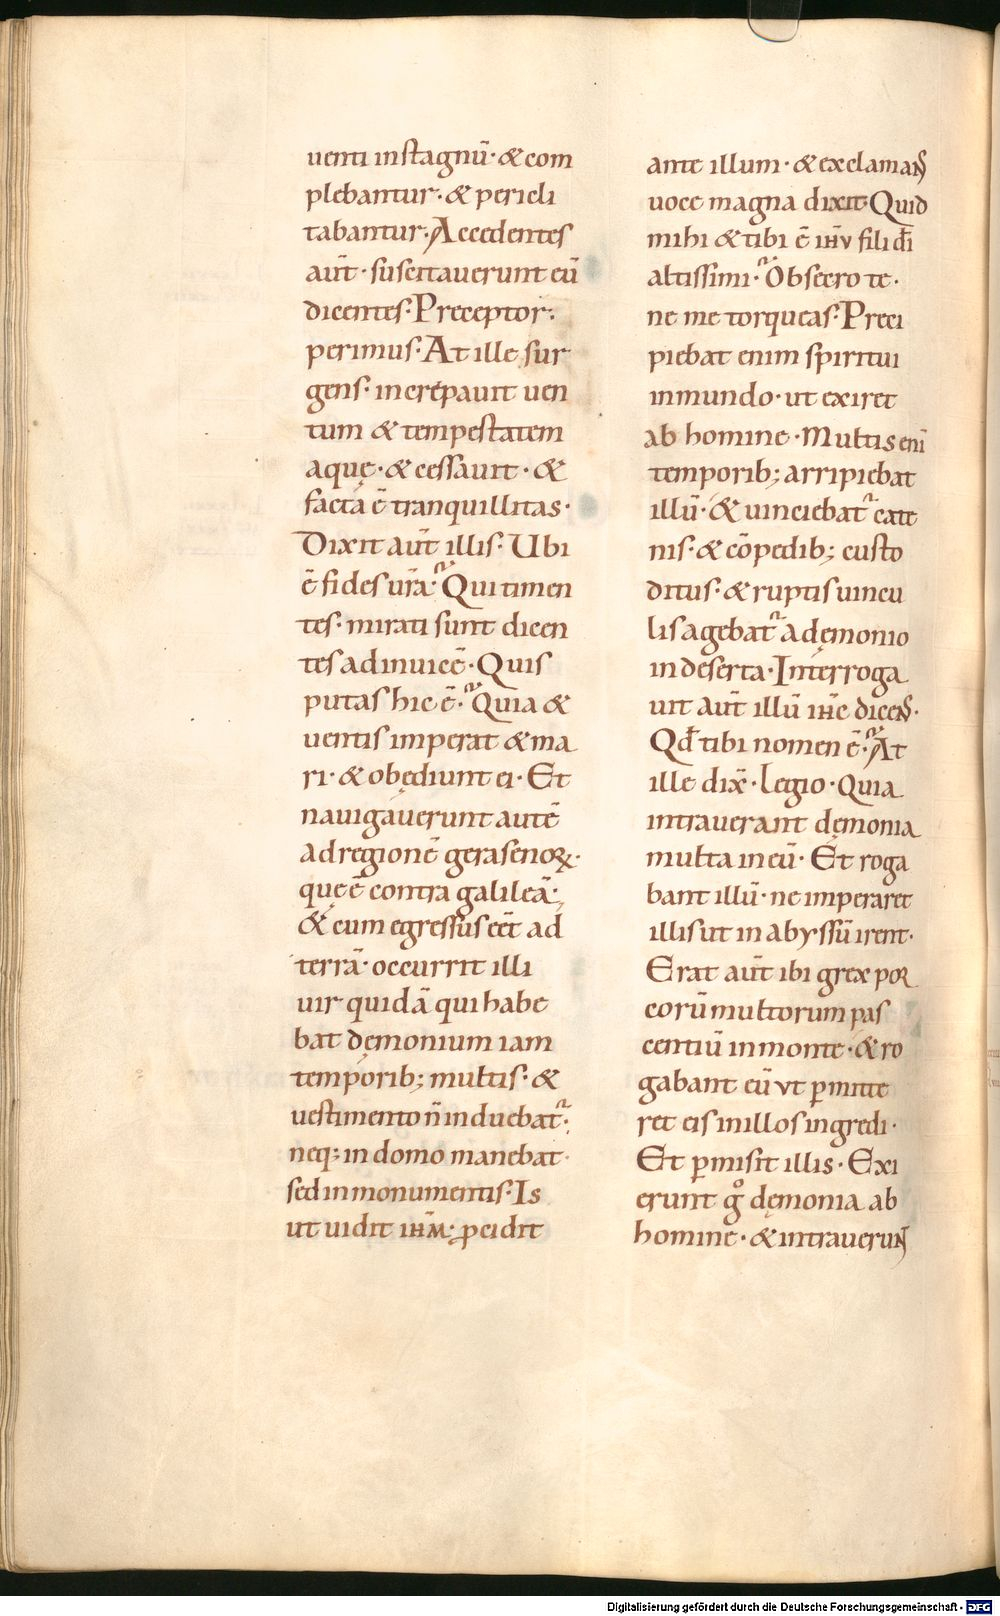 uenti in stagnū· & com
plebantur· & pericli
tabantur· Accedentes
aut̄· suscitauerunt eū
dicentes· Preceptor·
perimus· At ille sur
gens· increpauit uen
tum & tempestatem
aquę· & cessauit· &
facta ē tranquillitas·
Dixit aut̄ illis· Ubi
ē fides ur̄a? Qui timen
tes· mirati sunt dicen
tes adinuicē· Quis
putas hic ē? Quia &
uentis imperat & ma
ri· & obędiunt ei· Et
nauigauerunt autē
ad regionē gerasenoꝝ·
quę ē contra galileā·
& cum egressus eēt ad
terrā· occurrit illi
uir quidā qui habe
bat dęmonium iam
temporib; multis· &
uestimento n̄ induebat᷑·
neq; in domo manebat·
sed in monumentis· Is
ut uidit ihm̄· ꝓcidit
ante illum· & exclamans
uoce magna dixit· Quid
mihi & tibi ē ihū fili dī
altissimi? Obsecro te·
ne me torqueas· Preci
piebat enim spiritui
inmundo· ut exiret
ab homine· Multis eni̅
temporib; arripiebat
illū· & uinciebat᷑ cate
nis· & cōpedib; custo
ditus· & ruptis uincu
lis agebat᷑ a dęmonio
in deserta· Interroga
uit aut̄ illū ihc̄ dicens·
Qd̄ tibi nomen ē? At
ille dix̄· Legio· Quia
intrauerant dęmonia
multa in eū· Et roga
bant illū· ne imperaret
illis ut in abyssū irent·
Erat aut̄ ibi grex por
corū multorum pas
centiū in monte· & ro
gabant eū vt ꝑmitte
ret eis in illos ingredi·
Et ꝑmisit illis· Exi
erunt gͦ dęmonia ab
homine· & intrauerunt
Digitalisierung gefördert durch die Deutsche Forschungsgemeinschaft - DFG